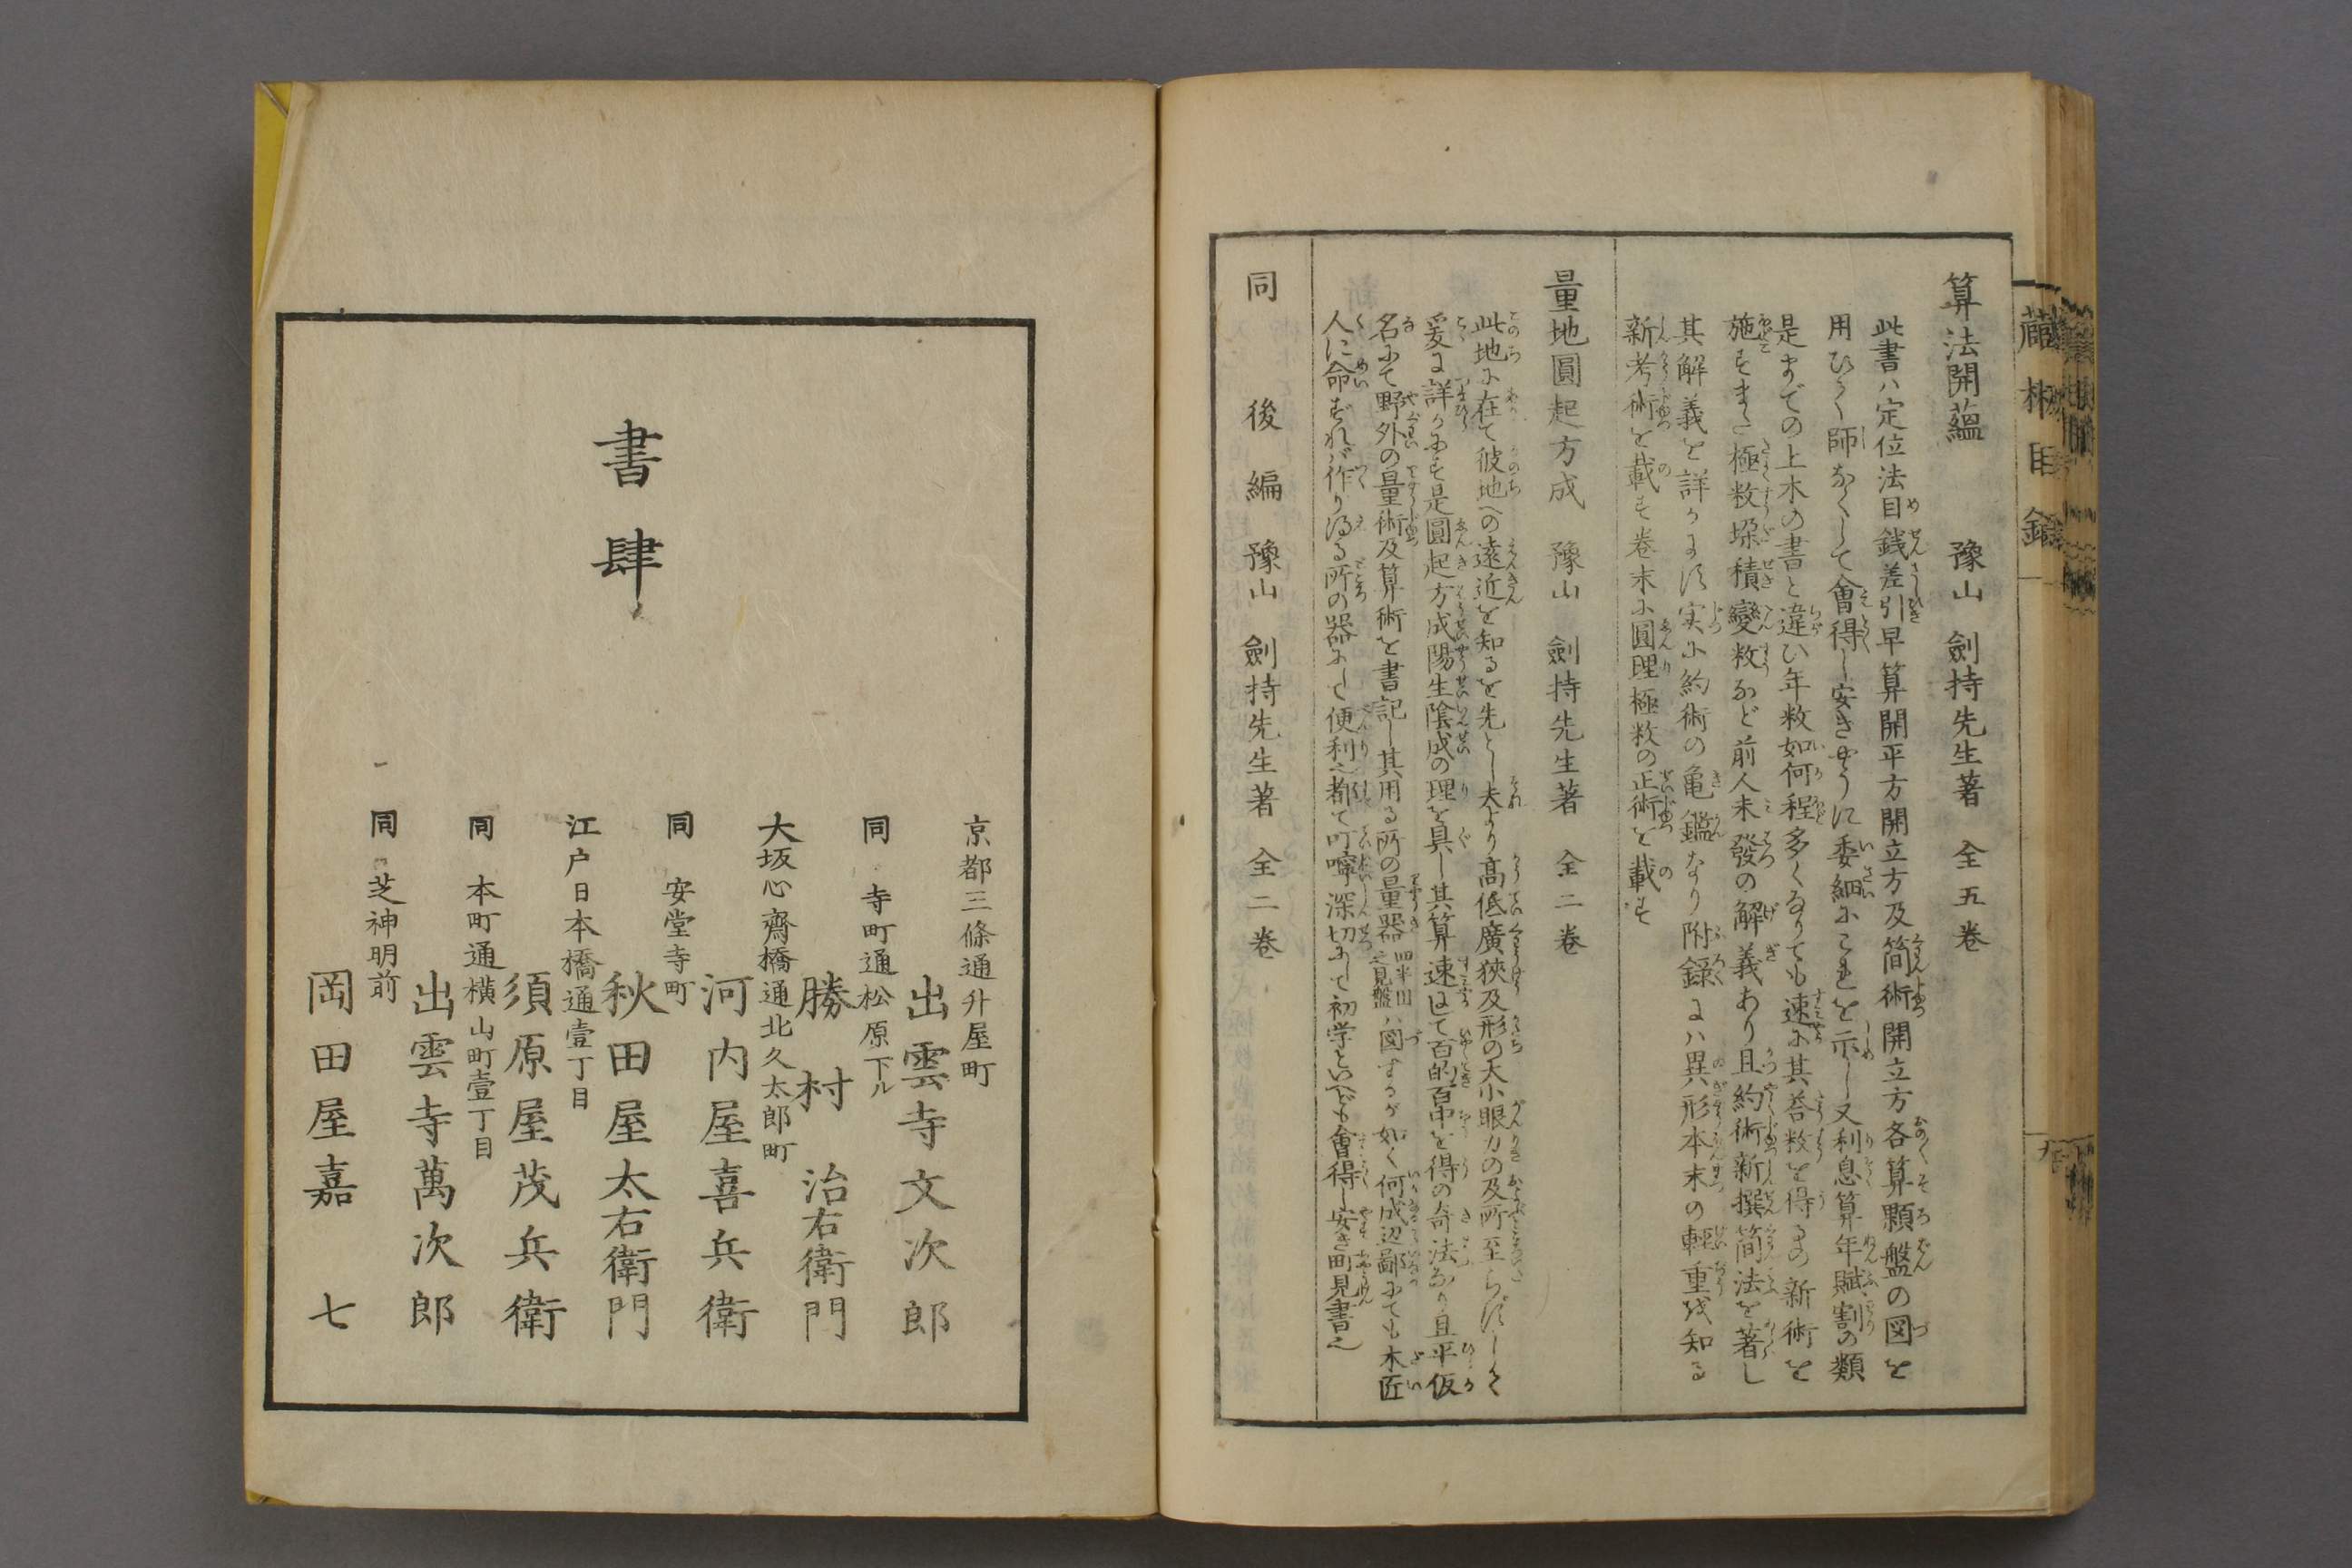 蔵板目録
算法開蘊 豫山 劍持先生著 全五巻
此書ハ定位法目銭差引早算開平方開立方及簡術開立方各算顆盤の図を
用ひく師なくして會得し安きやうに委細にこれを示し又利息算年賦割の類
是までの上木の書と違ひ年数如何程多くなりても速に其荅数を得るの新術を
施すまた極数垜積變数など前人未發の解義あり且約術新撰簡法を著し
其解義を詳かにす実に約術の亀鑑なり附録には異形本末の輕重を知る
新考術を載す巻末に圓理極数の正術を載す
量地圓起方成 豫山 劍持先生著 全二巻
此地に在て彼地への遠近を知るを先とし夫より高低廣狭及形の大小眼力の及所至らずしく
爰に詳かにす是圓起方成陽生陰成の理を具し其算速にして百的百中を得の奇法なり且平仮
名にて野外の量術及算術を書記し其用る所の量器四半円之見盤ハ図するが如く何成辺鄙にても木匠
人に命ずれバ作り得る所の器にして便利也都て叮嚀深切にして初学といへども會得し安き町見書也
同 後編 豫山 劍持先生著 全二巻
書肆
京都三條通升屋町
出雲寺文次郎
同 寺町通松原下ル
勝村治右衛門
大坂心齋橋通北久太郎町
河内屋喜兵衛
同 安堂寺町
秋田屋太右衛門
江戸日本橋通壹丁目
須原屋茂兵衛
同 本町通横山町壹丁目
出雲寺萬次郎
同 芝神明前
岡田屋嘉七